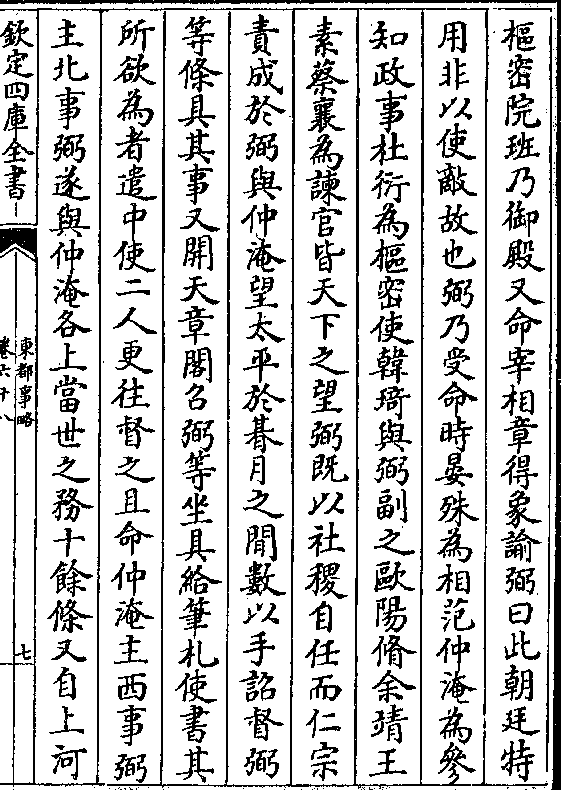 樞密院班乃御殿又命宰相章得象諭弼曰此朝廷特
用非以使敵故也弼乃受命時晏殊為相范仲淹為參
知政事杜衍為樞密使韓琦與弼副之歐陽脩余靖王
素蔡襄為諫官皆天下之望弼既以社稷自任而仁宗
責成於弼與仲淹望太平於朞月之間數以手詔督弼
等條具其事又開天章閣召弼等坐具給筆札使書其
所欲為者遣中使二人更往督之且命仲淹主西事弼
主北事弼遂與仲淹各上當世之務十餘條又自上河
欽定四庫全書
東都事略
卷六十八
七